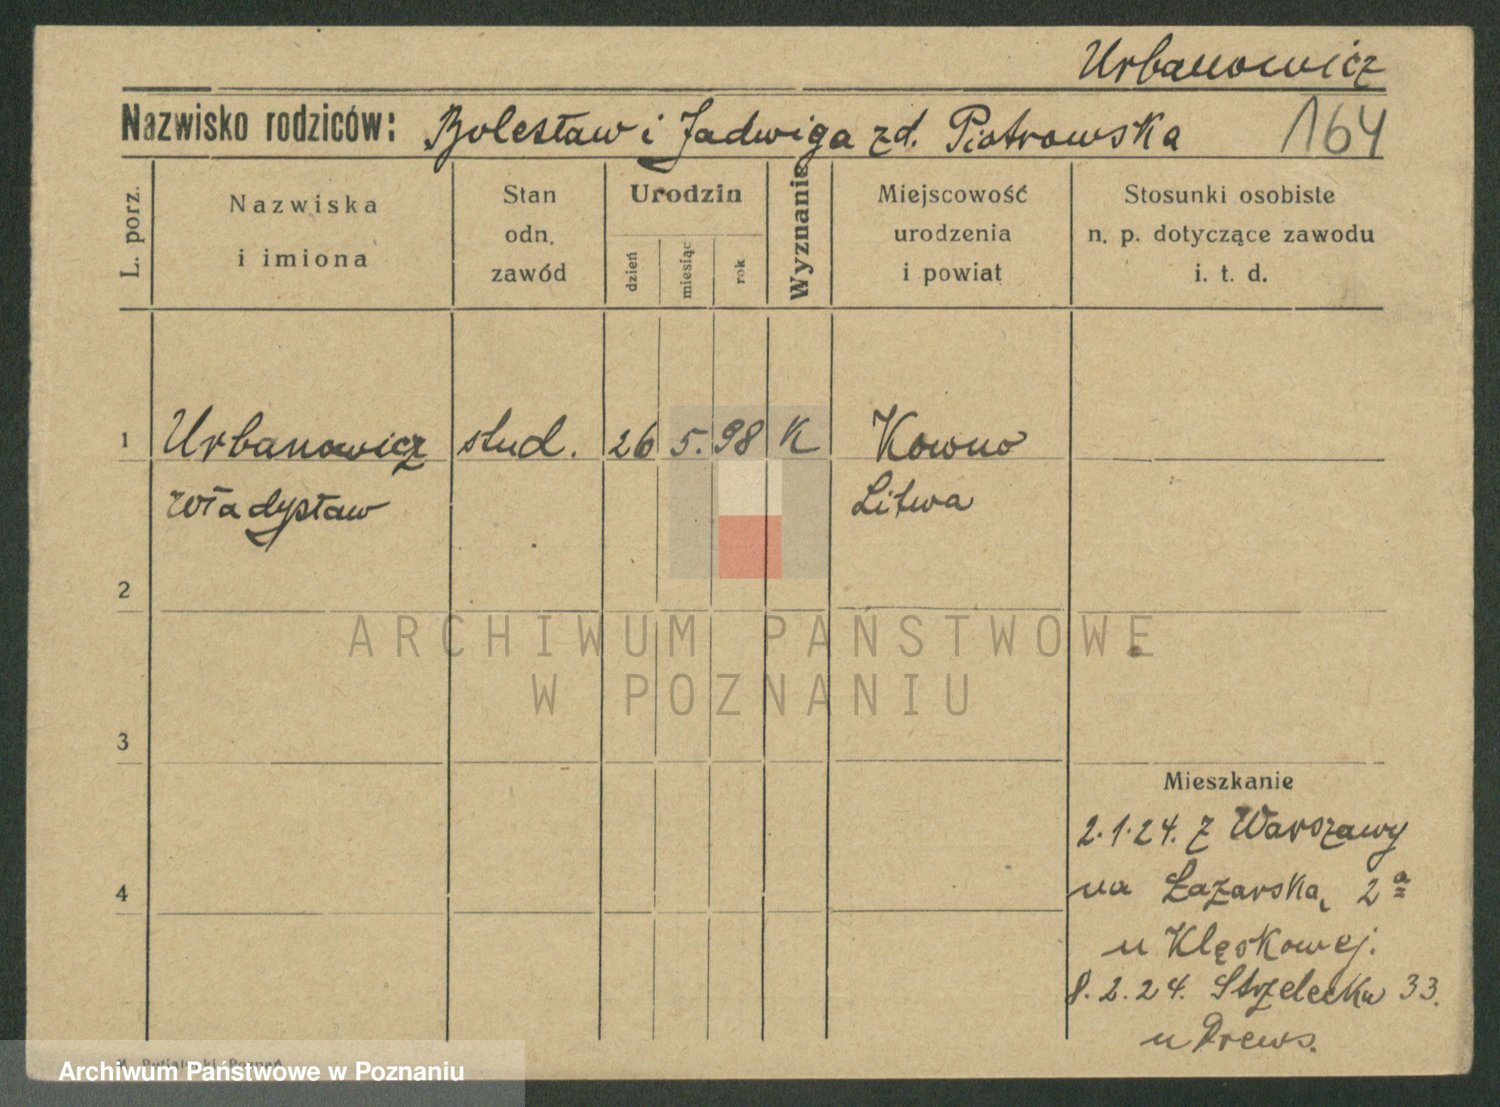 Urbanowicz
Nazwisko rodziców: Bolesław i Jadwiga zd. Piotrowska 164
L. porz.
Nazwiska
i imiona
Stan
odn.
zawód
Urodzin
dzień
miesiąc
rok
Wyznanie
Miejscowość
urodzenia
i powiat
Stosunki osobiste
n. p. dotyczące zawodu
i. t. d.
1 Urbanowicz stud. 26 5. 98 K Kowno
Władysław Litwa
2
ARCHIWUM PAŃSTWOWE
W POZNANIU
3
Mieszkanie
2.1.24. z Warszawy
na Łazarską 2a
4
u Klęskowej.
8.2.24. Strzelecka 33.
u Drews.
Poznań
Archiwum Państwowe w Poznaniu